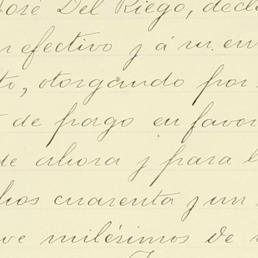 José Del Riego, decla
n efectivo y á m. en
to, otorgando por
de pago en favor
de ahora y para l
hos cuarenta y un
ve milésimos de